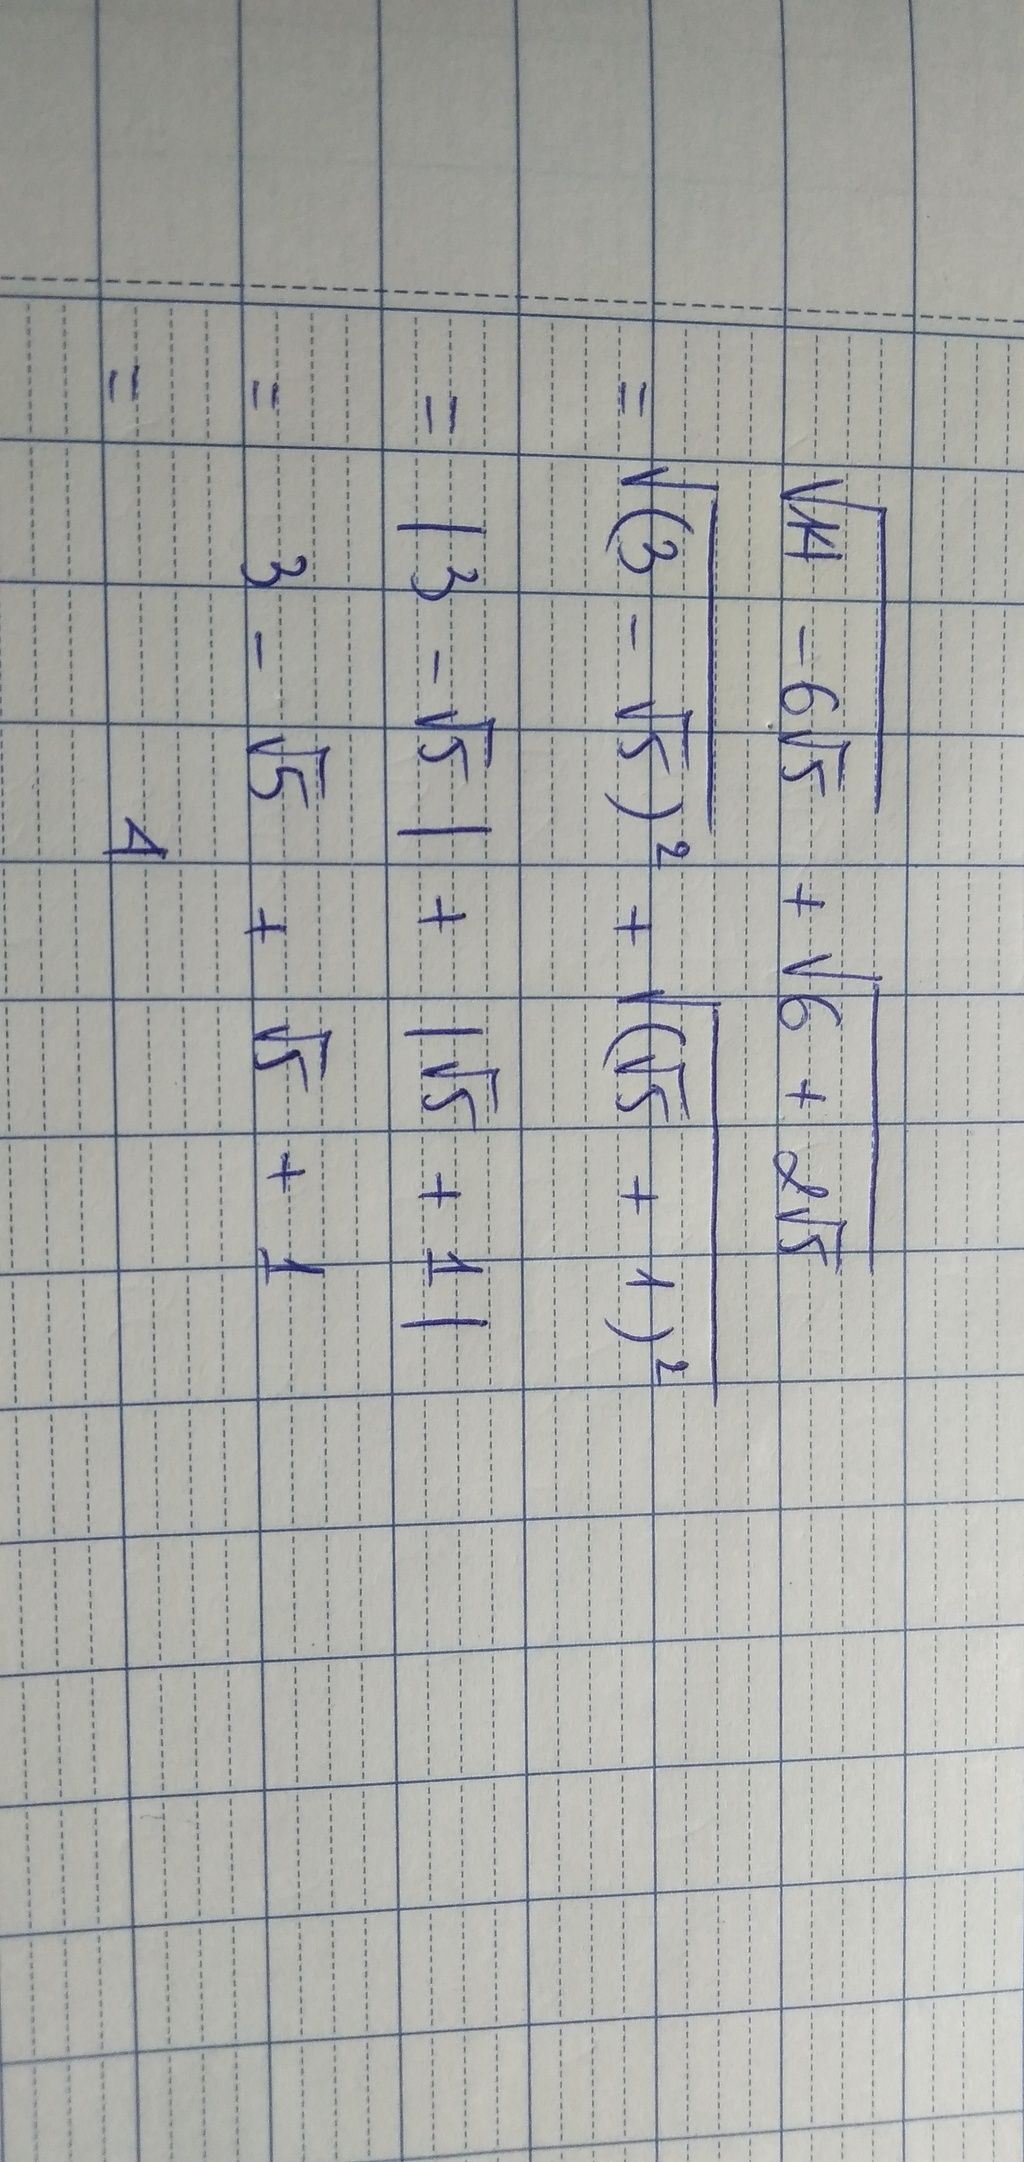 √(14 - 6√5) + √(6 + 2√5)
= √(3 - √5)² + √(√5 + 1)²
= |3 - √5| + |√5 + 1|
= 3 - √5 + √5 + 1
= 4